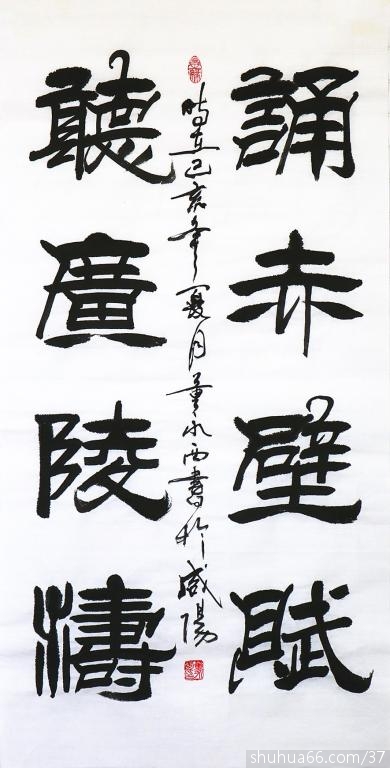 誦赤壁賦
聽廣陵濤
時在己亥年夏月董水西書於咸陽
shuhua66.com/37